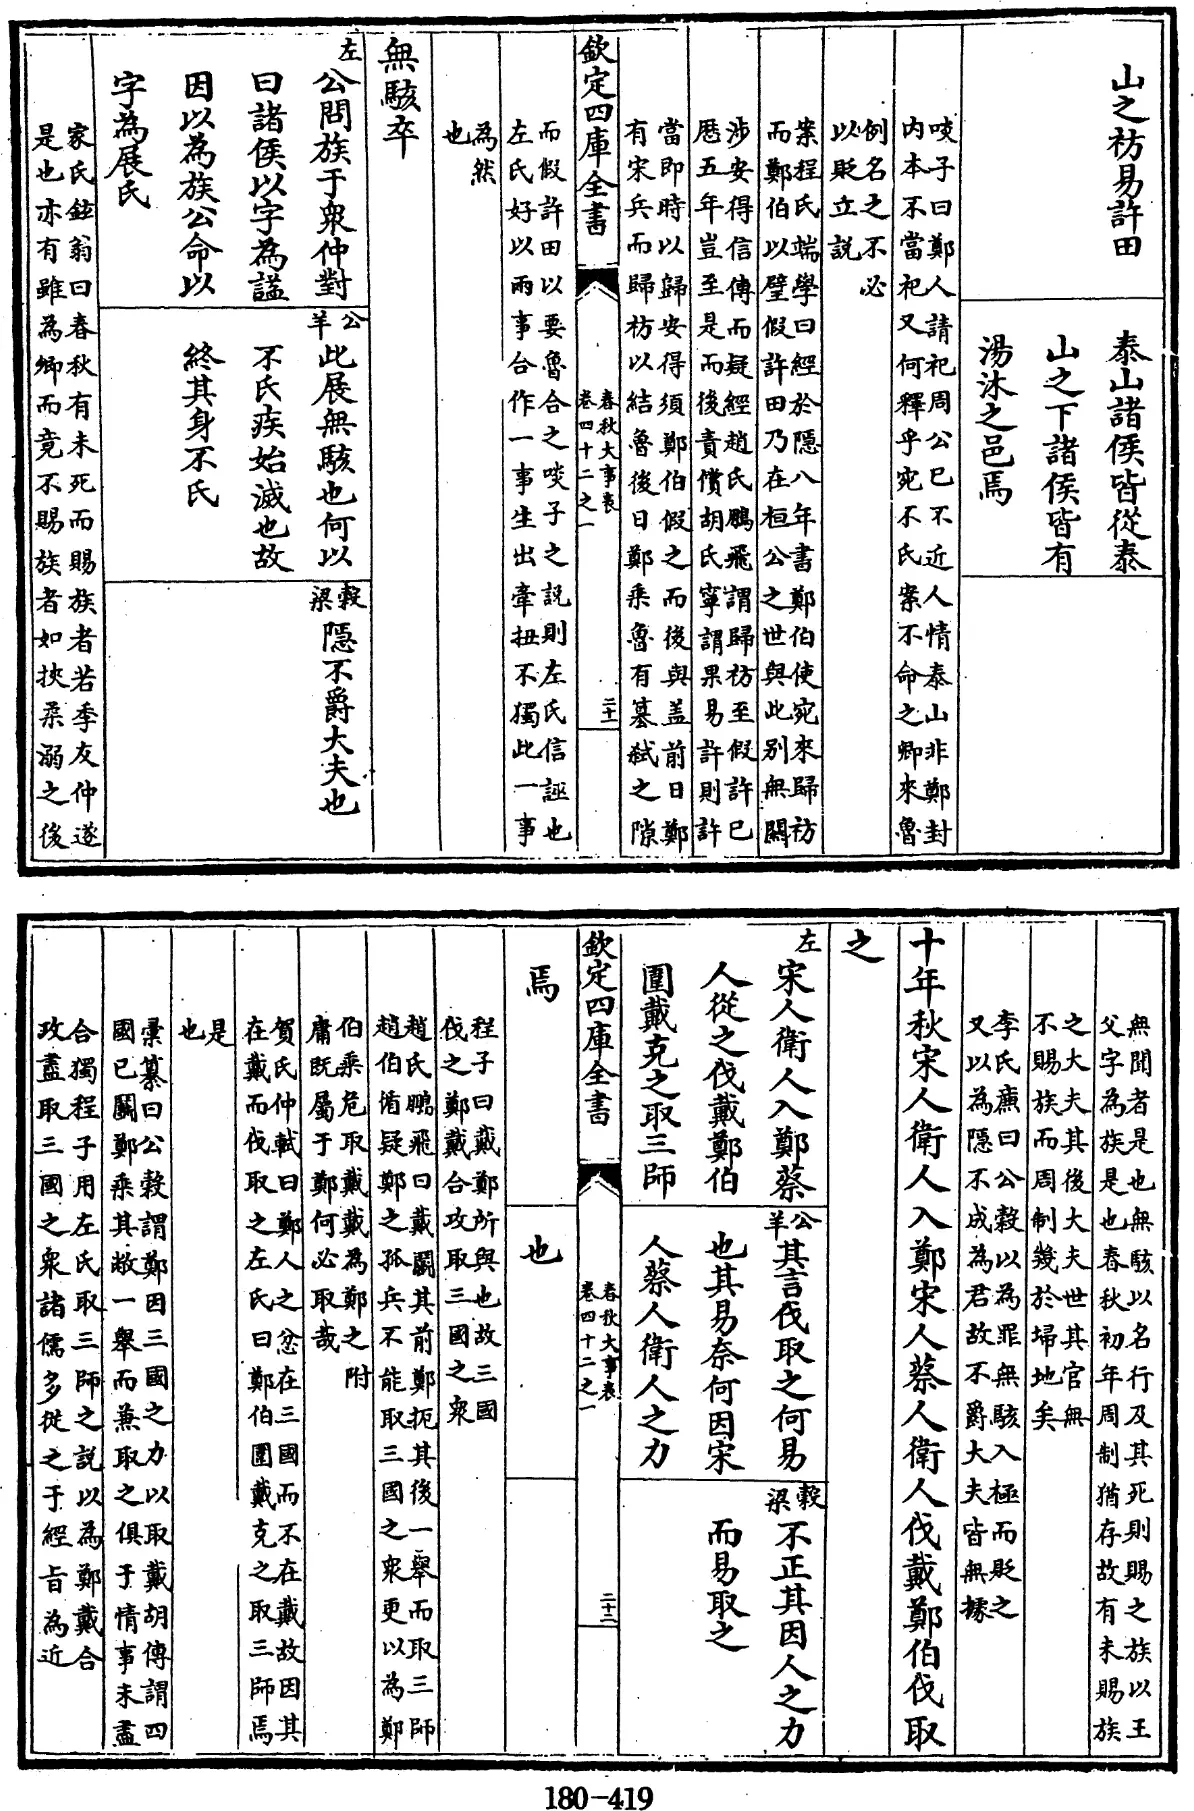 山之祊易許田
泰山諸侯皆從泰
山之下諸侯皆有
湯沐之邑焉
啖子曰鄭人請祀周公已不近人情泰山非鄭封
内本不當祀又何釋乎宛不氏案不命之卿來魯
例名之不必
以貶立説
案程氏端學曰經於隱八年書鄭伯使宛來歸祊
而鄭伯以璧假許田乃在桓公之世與此别無關
涉安得信傳而疑經趙氏鵬飛謂歸祊至假許已
厯五年豈至是而後責償胡氏寧謂果易許則許
當即時以歸安得須鄭伯假之而後與盖前日鄭
有宋兵而歸祊以結魯後日鄭乘魯有簒弑之隙
欽定四庫全書
春秋大事表
卷四十二之一
二十一
而假許田以要魯合之啖子之説則左氏信誣也
左氏好以兩事合作一事生出牽扭不獨此一事
為然
也
無駭卒
左
公問族于衆仲對
曰諸侯以字為諡
因以為族公命以
字為展氏
公羊
此展無駭也何以
不氏疾始滅也故
終其身不氏
穀梁
隱不爵大夫也
家氏鉉翁曰春秋有未死而賜族者若季友仲遂
是也亦有雖為卿而竟不賜族者如挾柔溺之後
無聞者是也無駭以名行及其死則賜之族以王
父字為族是也春秋初年周制猶存故有未賜族
之大夫其後大夫世其官無
不賜族而周制幾於埽地矣
李氏廉曰公穀以為罪無駭入極而貶之
又以為隱不成為君故不爵大夫皆無據
十年秋宋人衛人入鄭宋人蔡人衛人伐戴鄭伯伐取
之
左
宋人衛人入鄭蔡
人從之伐戴鄭伯
圍戴克之取三師
焉
公羊
其言伐取之何易
也其易奈何因宋
人蔡人衛人之力
也
穀梁
不正其因人之力
而易取之
欽定四庫全書
春秋大事表
卷四十二之一
二十二
程子曰戴鄭所與也故三國
伐之鄭戴合攻取三國之衆
趙氏鵬飛曰戴鬭其前鄭扼其後一舉而取三師
趙伯循疑鄭之孤兵不能取三國之衆更以為鄭
伯乘危取戴戴為鄭之附
庸既屬于鄭何必取哉
賀氏仲軾曰鄭人之忿在三國而不在戴故因其
在戴而伐取之左氏曰鄭伯圍戴克之取三師焉
是
也
彚纂曰公穀謂鄭因三國之力以取戴胡傳謂四
國已鬭鄭乘其敝一舉而兼取之俱于情事未盡
合獨程子用左氏取三師之説以為鄭戴合
攻盡取三國之衆諸儒多從之于經旨為近
180-419